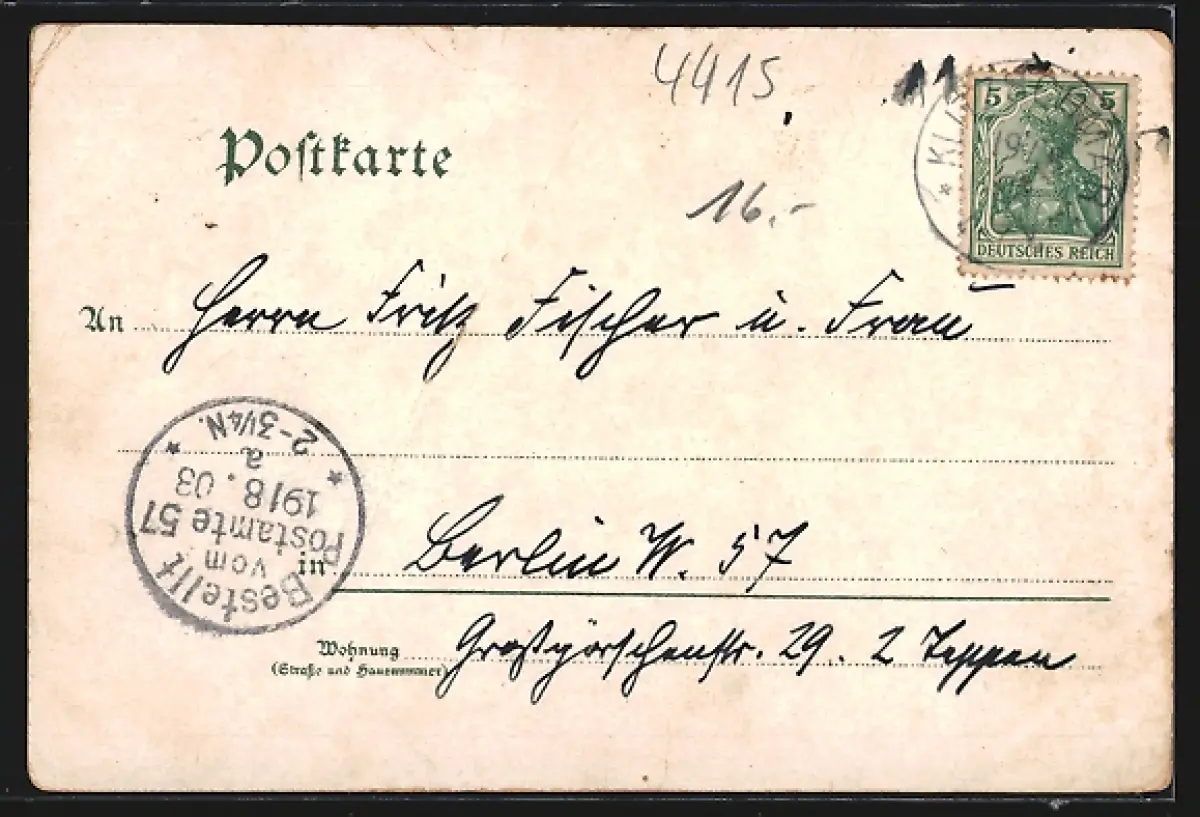 4415
11
Postkarte
5 5
DEUTSCHES REICH
16.-
An Herrn Fritz Fischer u. Frau
Bestellt
vom
Postamte 57
19/8.03
a
2-3¼N.
in Berlin W. 57
Wohnung
(Straße und Hausnummer)
Großgörschenstr. 29. 2 Teppen